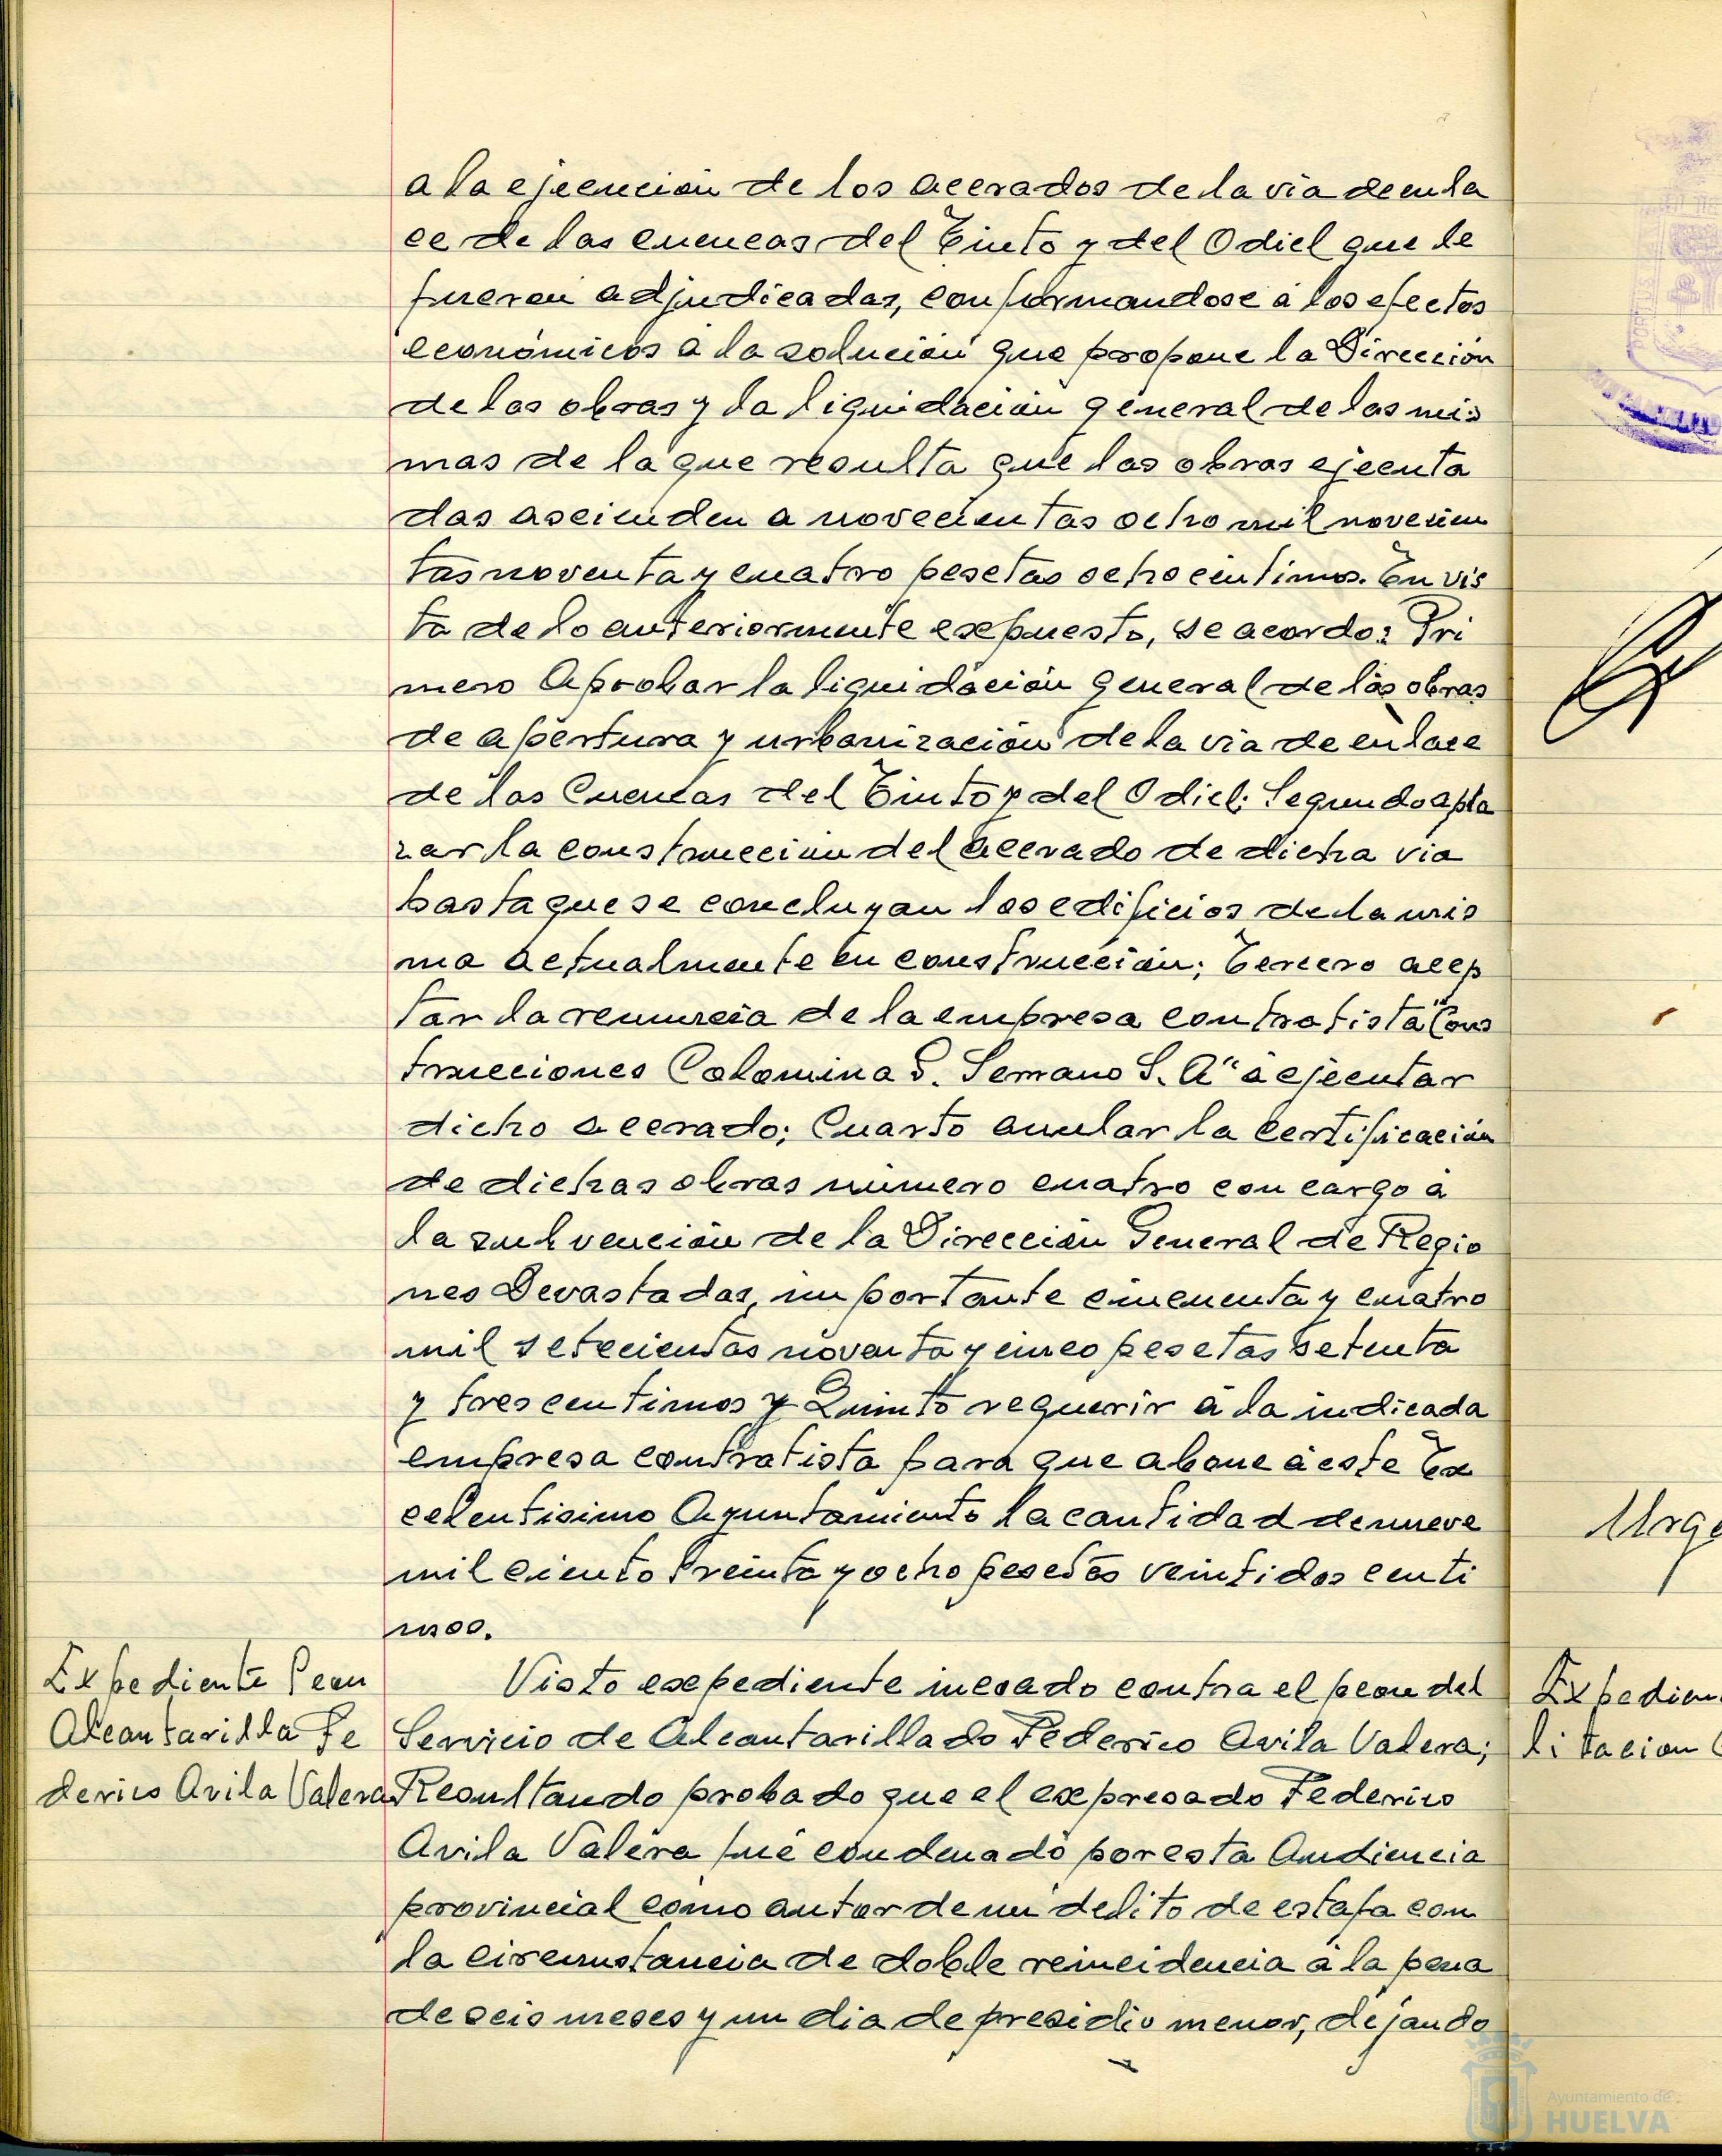 a la ejecución de los acerados de la via de enla
ce de las cuencas del Tinto y del Odiel que le
fueron adjudicadas, conformandose á los efectos
económicos a la solución que propone la Dirección
de las obras y la liquidación general de las mis
mas de la que resulta que las obras ejecuta
das ascienden a novecientas ocho mil novecien
tas noventa y cuatro pesetas ocho centimos. En vis
ta de lo anteriormente expuesto, se acordo: Pri
mero Aprobar la liquidación general de las obras
de apertura y urbanización de la via de enlace
de las Cuencas del Tinto y del Odiel; Segundo apla
zar la construccion del acerado de dicha via
hasta que se concluyan los edificios de la mis
ma actualmente en construcción; Tercero acep
tar la renuncia de la empresa contratista "Cons
trucciones Colomina G. Serrano S. A" a ejecutar
dicho acerado; Cuarto anular la Certificación
de dichas obras número cuatro con cargo a
la subvención de la Dirección General de Regio
nes Devastadas, importante cincuenta y cuatro
mil setecientas noventa y cinco pesetas setenta
y tres centimos y Quinto requerir á la indicada
empresa contratista para que abone á este Ex
celentisimo Ayuntamiento la cantidad de nueve
mil ciento treinta y ocho pesetas veintidos centi
mos.
Expediente Peon
Alcantarilla Fe
derico Avila Valera
Visto expediente incoado contra el peon del
Servicio de Alcantarillado Federico Avila Valera;
Resultando probado que el expresado Federico
Avila Valera fué condenado por esta Audiencia
provincial como autor de un delito de estafa con
la circunstancia de doble reincidencia a la pena
de seis meses y un dia de presidio menor, dejando
Urge
Expedien
litacion
Ayuntamiento de
HUELVA